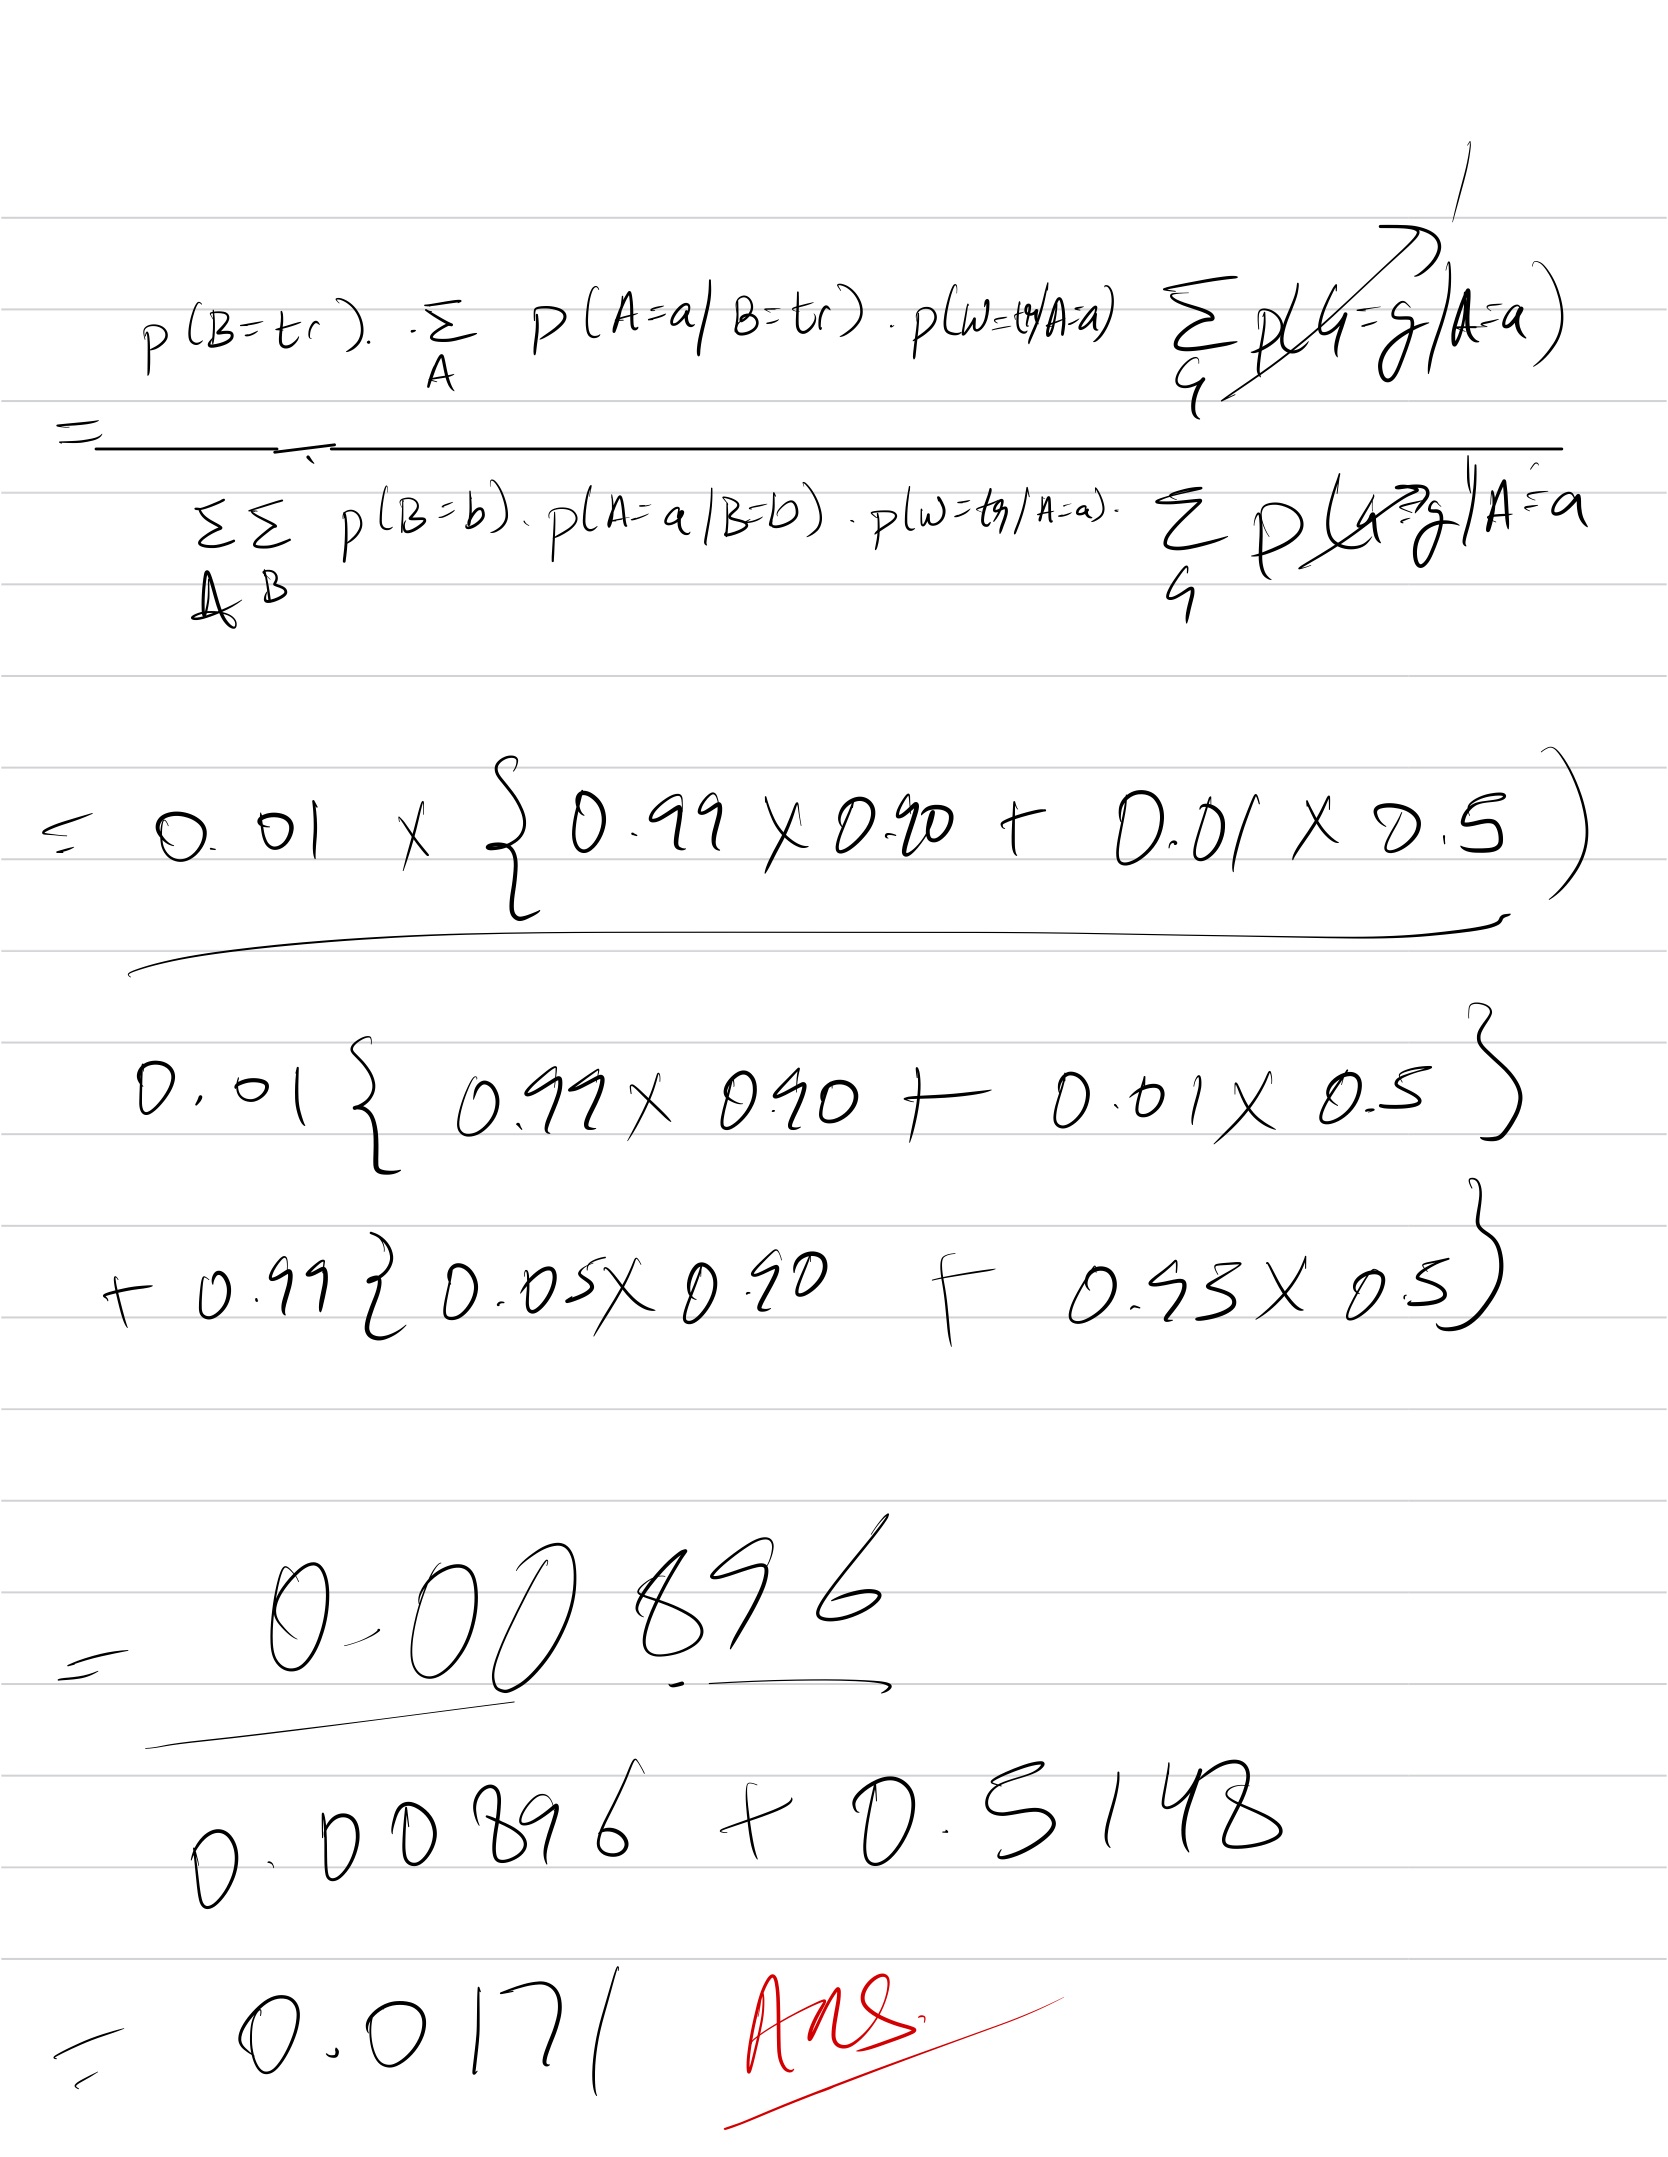 1
p(B=tr). . Σ p(A=a/B=tr) . p(W=tr/A=a) Σ p(G=g/A=a)
A G
=
ΣΣ p(B=b). p(A=a/B=b). p(W=tr/A=a). Σ p(G=g/A=a
A B G
= 0.01 x { 0.99 x 0.90 + 0.01 x 0.5 )
0.01 { 0.99 x 0.90 + 0.01 x 0.5 }
+ 0.99 { 0.05 x 0.90 + 0.95 x 0.5 }
= 0.00896
0.00896 + 0.5148
= 0.0171 Ans.